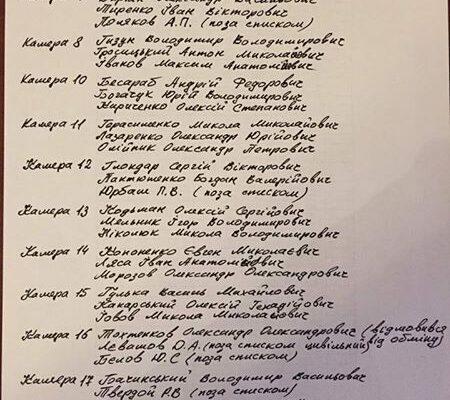 Тиренко Іван Вікторович
Поляков А.П. (поза списком)
Камера 8 Тизун Володимир Володимирович
Грасицький Антон Миколайович
Іваков Максим Анатолійович
Камера 10 Бесараб Андрій Федорович
Богачук Юрій Володимирович
Кириченко Олексій Степанович
Камера 11 Герасименко Микола Миколайович
Лазаренко Олександр Юрійович
Олійпик Олександр Петрович
Камера 12 Глондар Сергій Вікторович
Пантюшенко Богдан Валерійович
Юрбаш П.В. (поза списком)
Камера 13 Кодьман Олексій Сергійович
Мельник Ігор Володимирович
Ніколюк Микола Володимирович
Камера 14 Кононенко Євген Миколаєвич
Ляса Іван Анатолійович
Морозов Олександр Олександрович
Камера 15 Гулька Василь Михайлович
Какарський Олексій Генадійович
Говов Микола Миколайович
Камера 16 Тохтенков Олександр Олександрович (відмовився
Левашов О.А. (поза списком цивільний) від обміну)
Белов Ю.С (поза списком)
Камера 17 Бачинський Володимир Васильович
Твердой Р.В (поза списком)